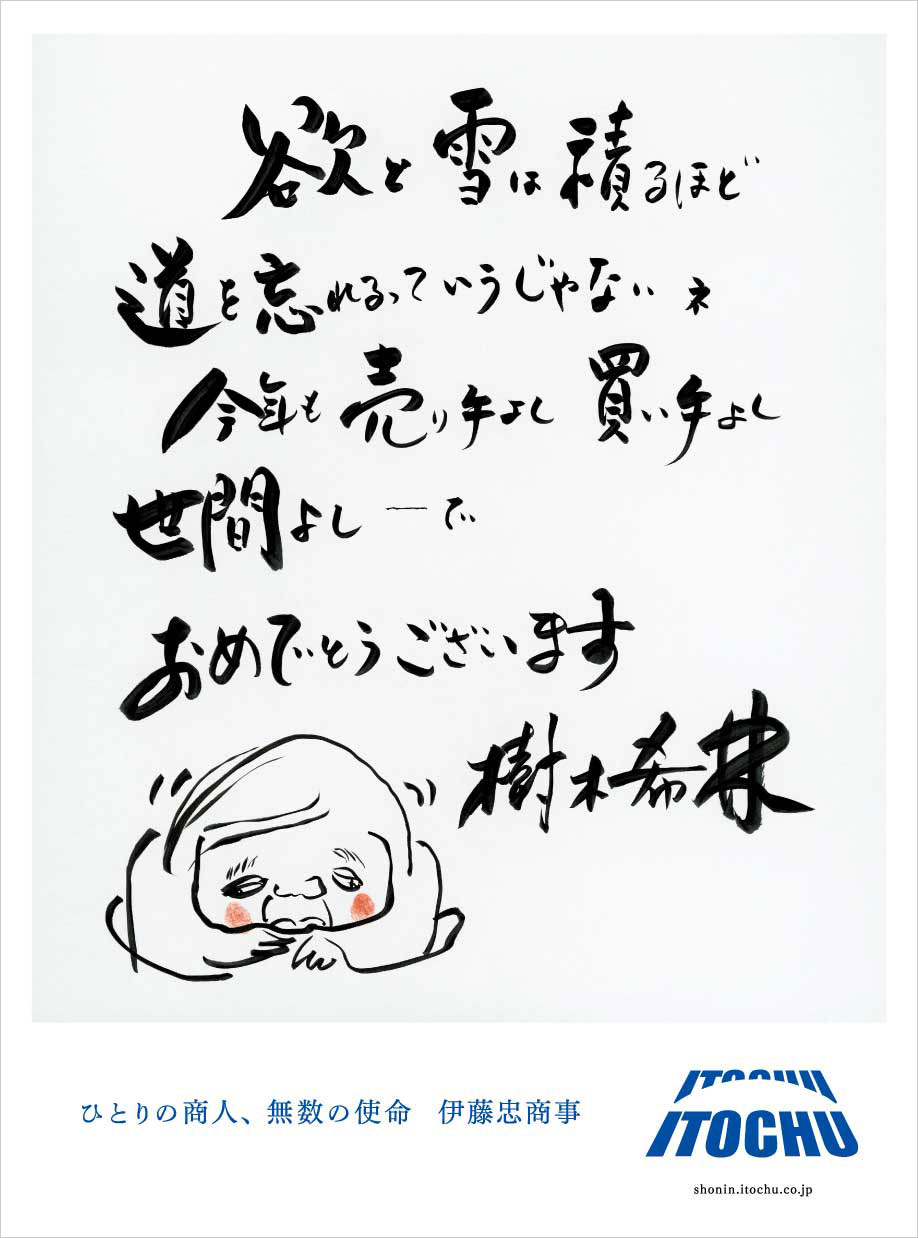 欲と雪は積るほど
道を忘れるっていうじゃない ネ
今年も 売り手よし 買い手よし
世間よし ―で
おめでとうございます
樹木希林
ひとりの商人、無数の使命　伊藤忠商事
ITOCHU
ITOCHU
shonin.itochu.co.jp